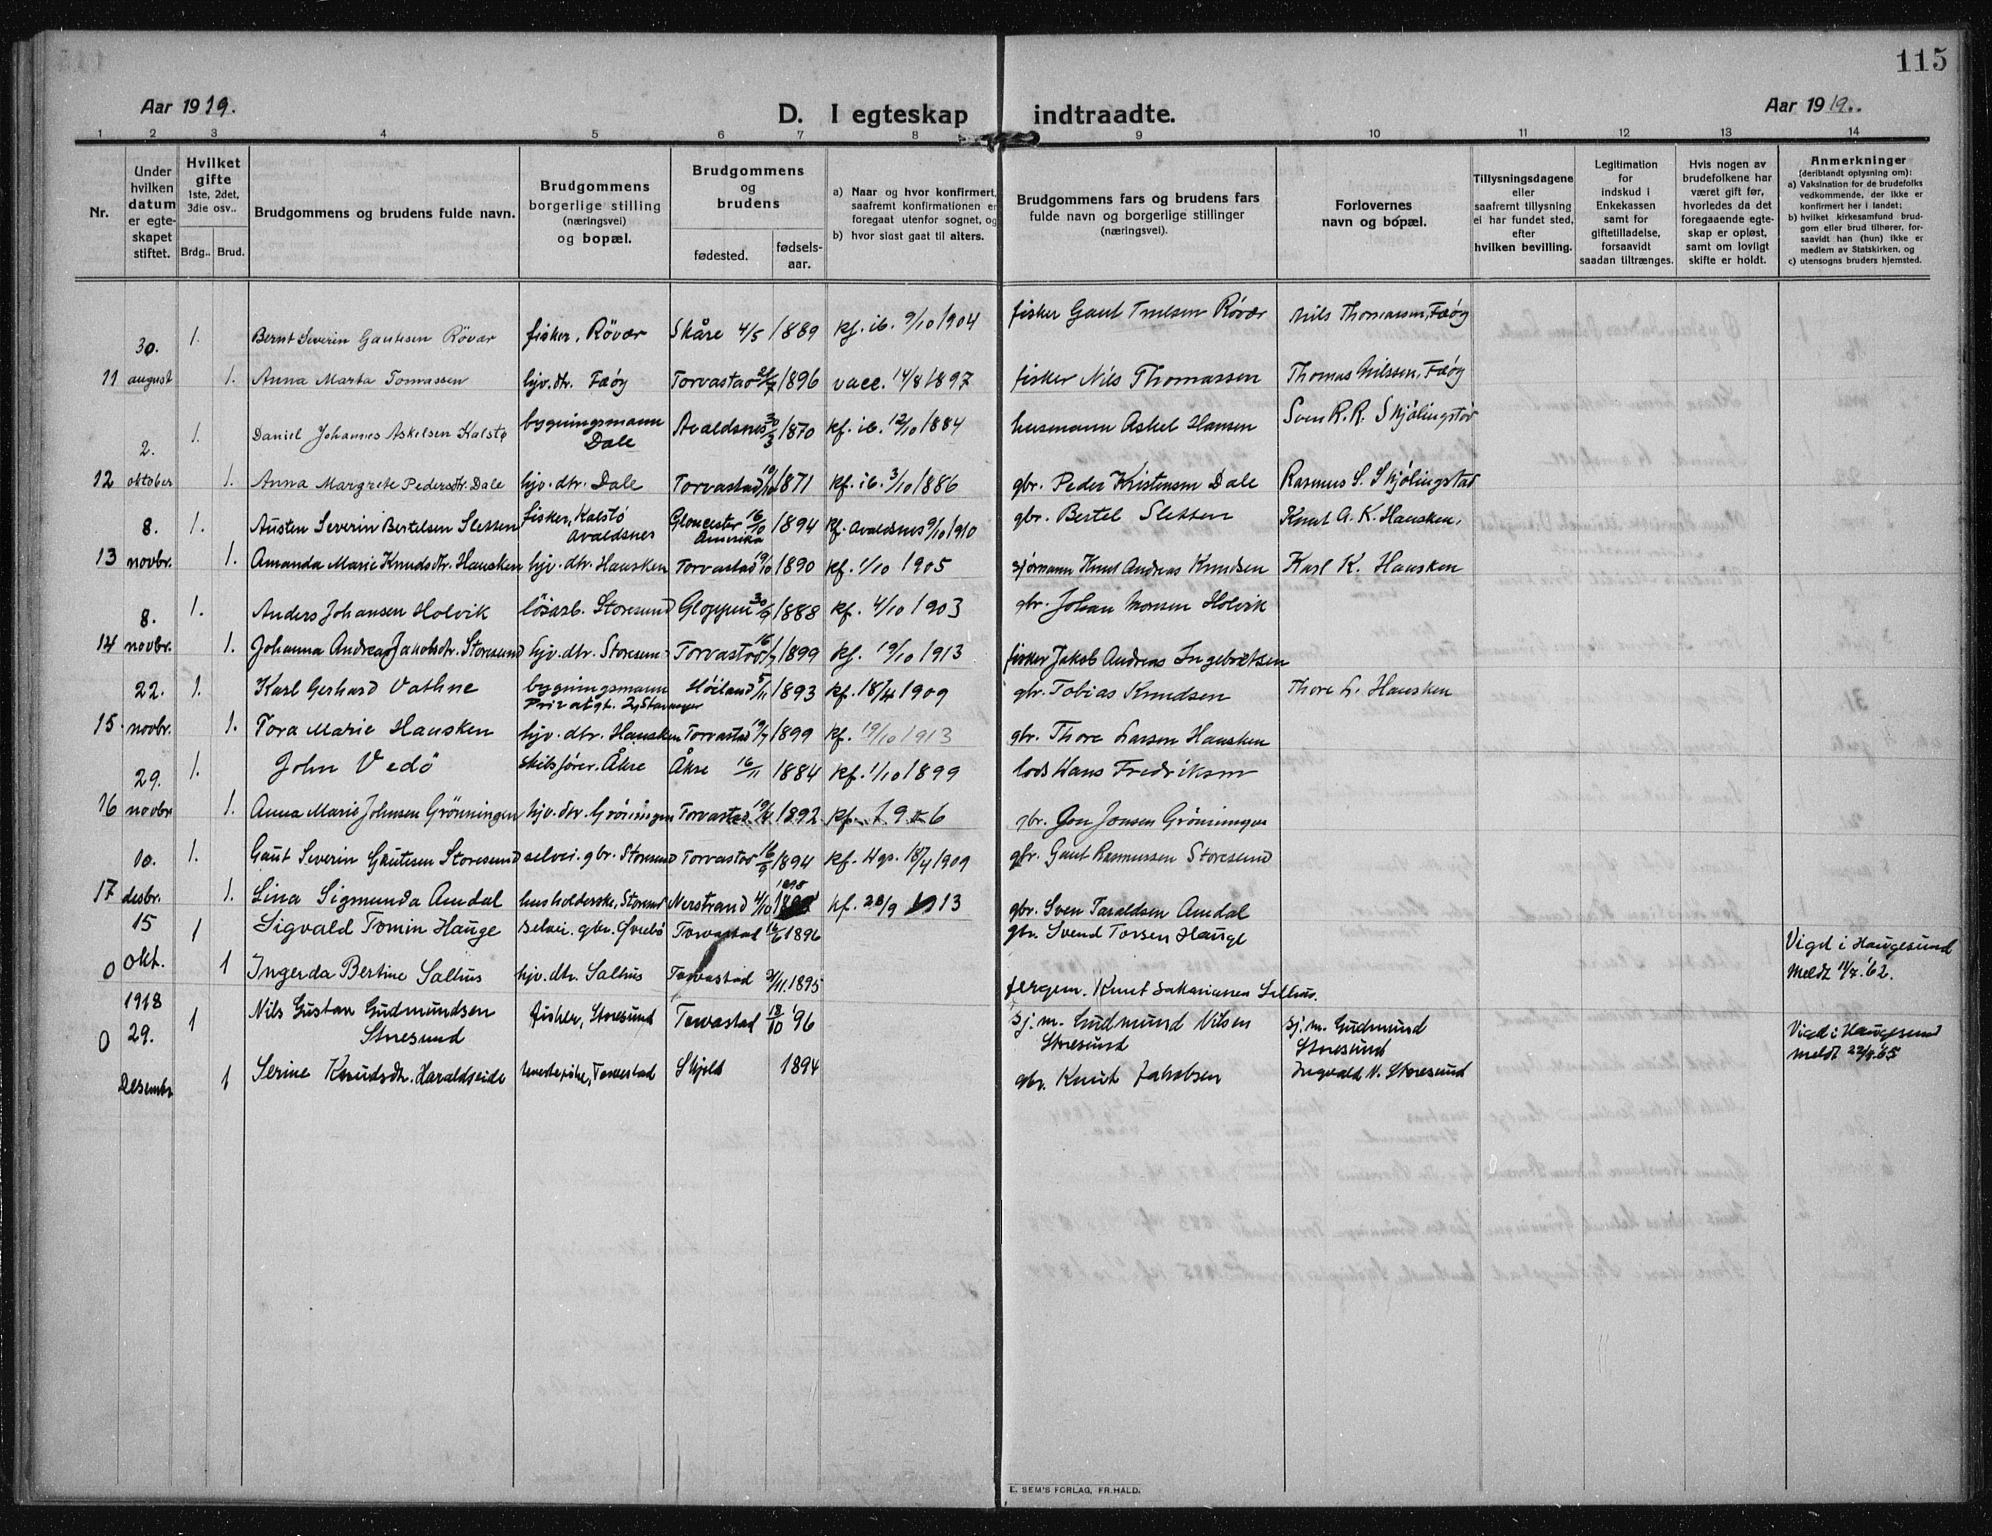 115
Aar 1919.
D. I egteskap indtraadte.
Aar 1919.
1 2 3 4 5 6 7 8 9 10 11 12 13 14
Nr.
Under hvilken datum er egteskapet stiftet.
Hvilket gifte 1ste, 2det, 3die osv..
Brdg.. Brud.
Brudgommens og brudens fulde navn.
Brudgommens borgerlige stilling (næringsvei) og bopæl.
Brudgommens og brudens
fødested. fødselsaar.
a) Naar og hvor konfirmert, saafremt konfirmationen er foregaat utenfor sognet, og
b) hvor sidst gaat til alters.
Brudgommens fars og brudens fars fulde navn og borgerlige stillinger (næringsvei).
Forlovernes navn og bopæl.
Tillysningsdagene eller saafremt tillysning ei har fundet sted, efter hvilken bevilling.
Legitimation for indskud i Enkekassen samt for giftetilladelse, forsaavidt saadan tiltrænges.
Hvis nogen av brudefolkene har været gift før, hvorledes da det foregaaende egteskap er opløst, samt om lovligt skifte er holdt.
Anmerkninger (deriblandt oplysning om):
a) Vaksination for de brudefolks vedkommende, der ikke er konfirmert her i landet;
b) hvilket kirkesamfund brudgom eller brud tilhører, forsaavidt han (hun) ikke er medlem av Statskirken, og
c) utensogns bruders hjemsted.
30. 1. Bernt Severin Gautesen Rövær fisker, Röver Skåre 4/5 1889 kf. ib. 9/10 1904 fisker Gaut Röver Nils Thomassen, Fæöy
11 august 1. Anna Marta Tomassen hjv. dtr. Fæöy Torvastad 1896 vacc. 14/8 1897 fisker Nils Thomassen Thomas Nilssen, Fæöy
2. 1. Daniel Johannes Askelsen Kalstø bygningsmann Dale Avaldsnes 30/3 1870 kf. ib. 12/10 1884 husmann Askel Hansen Sven R. R. Skjölingstad
12 oktober 1. Anna Margrete Pedersdtr. Dale hjv. dtr. Dale Torvastad 19/10 1871 kf. ib. 3/10 1886 gbr. Peder Kristensen Dale Rasmus S. Skjölingstad
8. 1. Austen Severin Bertelsen Sletten fisker, Kalstø Avaldsnes Gloucester Amerika 16/10 1894 kf. Avaldsnes 9/10 1910 gbr. Bertel Sletten Knut A. K. Hausken,
13 novbr. 1. Amanda Marie Knudsdtr. Hausken hjv. dtr. Hausken Torvastad 19/10 1890 kf. 1/10 1905 sjømann Knut Andreas Knudsen Karl K. Hausken
8. 1. Anders Johansen Holvik løsarb. Storesund Gloppen 1888 kf. 4/10 1903 gbr. Johan Monsen Holvik
14 novbr. 1. Johanna Andrea Jakobsdtr. Storesund hjv. dtr. Storesun- Torvastad 16/7 1899 kf. 19/10 1913 fisker Jakob Andreas Ingebretsen
22. 1. Karl Gerhard Vathne bygningsmann Privatgt. 2, Stavanger Höiland 5/11 1893 kf. 18/4 1909 gbr. Tobias Knudsen Thore L. Hausken
15. novbr. 1. Tora Marie Hausken hjv. dtr. Hausken Torvastad 19/7 1899 kf. 19/10 1913 gbr. Thore Larsen Hausken
29. 1. John Vedö skibsfører. Åkre Åkre 16/11 1884 kf. 1/10 1899 lods Hans Fredriksen
16 novbr 1. Anna Marie Johnsen Grönningen hjv. dtr. Grönningen Torvastad 19/4 1892 kf. gbr. Jon Jonsen Grönningen
10. 1. Gaut Severin Gautesen Storesund selvei. gbr. Storesund Torvastad 16/9 1894 kf. Hgs. 18/4 1909 gbr. Gaut Rasmussen Storesund
17 desbr. 1. Lina Sigmunda Amdal husholderske, Storesund Nerstrand 4/10 1898 kf. 28/9 1913 gbr. Sven Taraldsen Amdal
15 1 Sigvald Tomin Hauge selvei. gbr. Øvrebö Torvastad 16/6 1896 gbr. Svend Torsen Hauge
0 okt. 1 Ingerda Bertine Salhus hjv. dtr. Salhus Torvastad 1895 fergem. Knut Sakariassen Salhus. Vigd i Haugesund meldt 11/7.'62.
1918
29. 1 Nils Gustav Gudmundsen Storesund fisker, Storesund Torvastad 18/10 '96 Sj.m. Gudmund Nilsen Storesund Sj.m. Gudmund Storesund Vigd i Haugesund meldt
0 Desembr 1 Serine Knudsdtr. Haraldseide Torvestad Skjold 1894 gbr. Knut Jakobsen Ingvald N. Storesund
E. SEM'S FORLAG, FR.HALD.